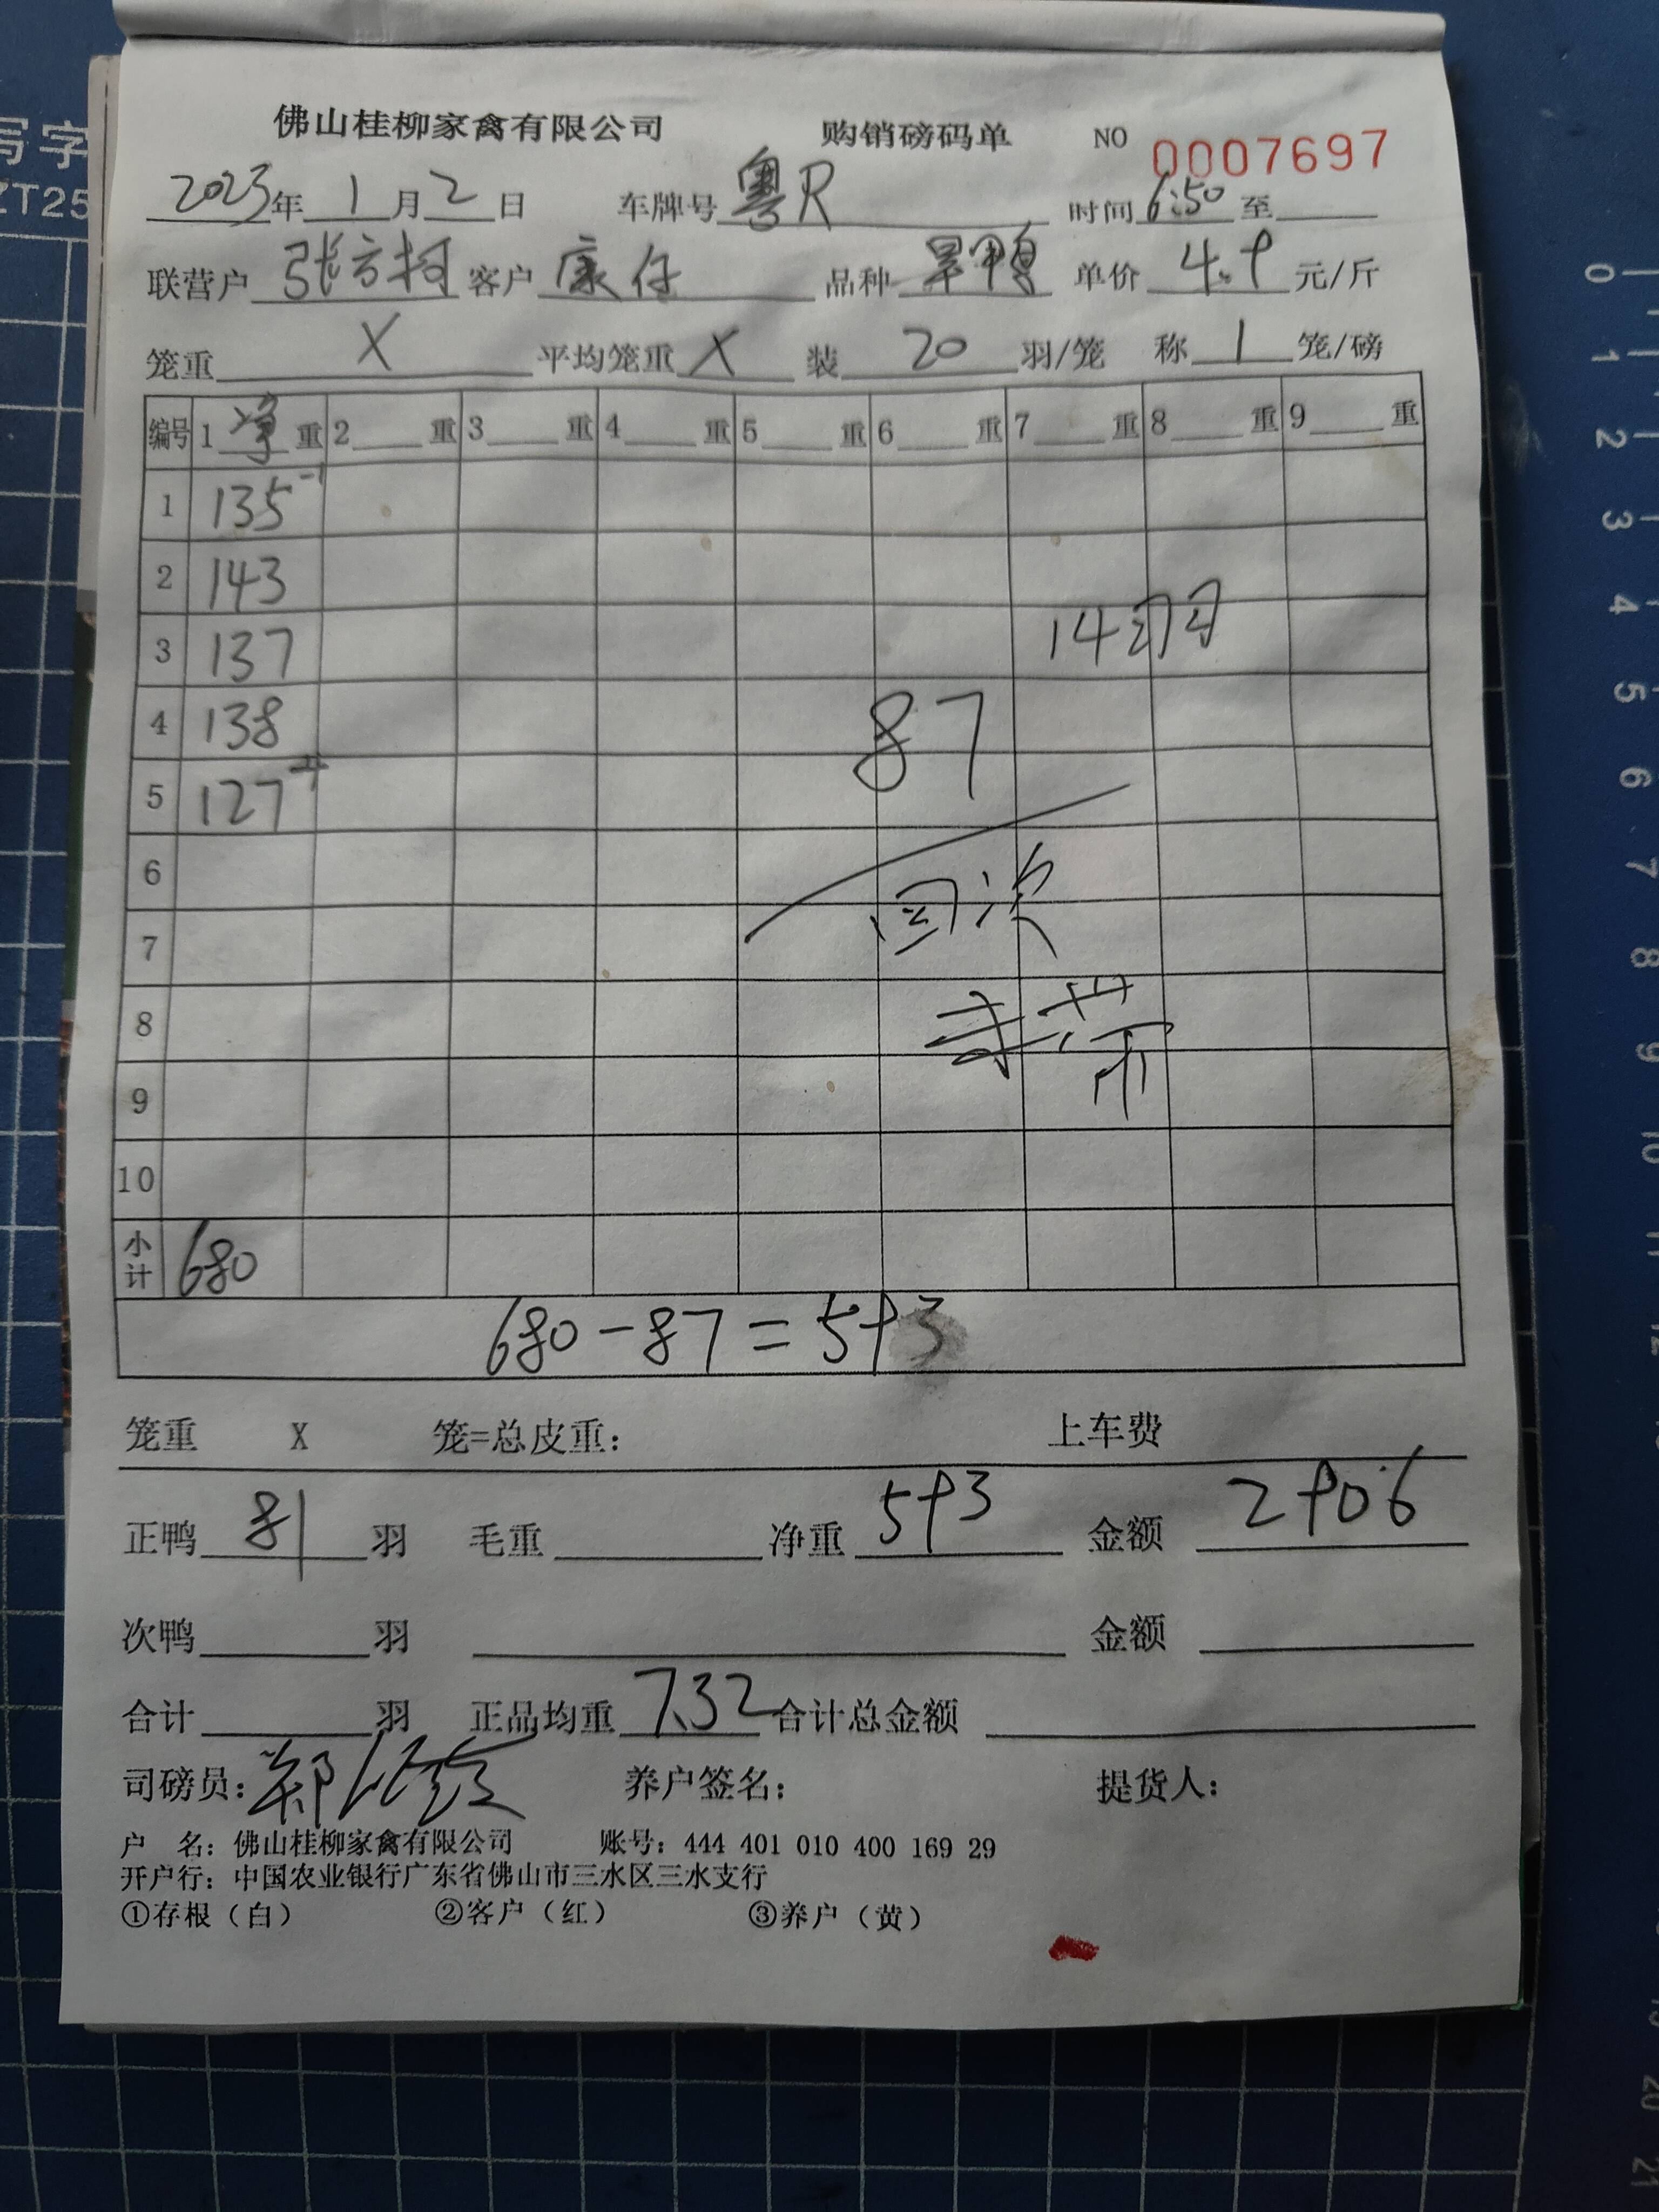 写字
ZT25
佛山桂柳家禽有限公司 购销磅码单 NO 0007697
2023年 1 月 2 日 车牌号 粤R 时间 6:50 至
联营户 张方柯 客户 康仔 品种 旱鸭 单价 4.9 元/斤
笼重 X 平均笼重 X 装 20 羽/笼 称 1 笼/磅
编号 1 净 重 2 重 3 重 4 重 5 重 6 重 7 重 8 重 9 重
1 135 -1
2 143
3 137 14羽
4 138 87
5 127
6
7 回次
8
9
10
小计 680
680-87=593
笼重 X 笼=总皮重: 上车费
正鸭 81 羽 毛重 净重 593 金额 2906
次鸭 羽 金额
合计 羽 正品均重 7.32 合计总金额
司磅员: 郑 养户签名: 提货人:
户 名: 佛山桂柳家禽有限公司 账号: 444 401 010 400 169 29
开户行: 中国农业银行广东省佛山市三水区三水支行
①存根(白) ②客户(红) ③养户(黄)
0
1
2
3
4
5
6
7
8
9
10
11
12
20
21